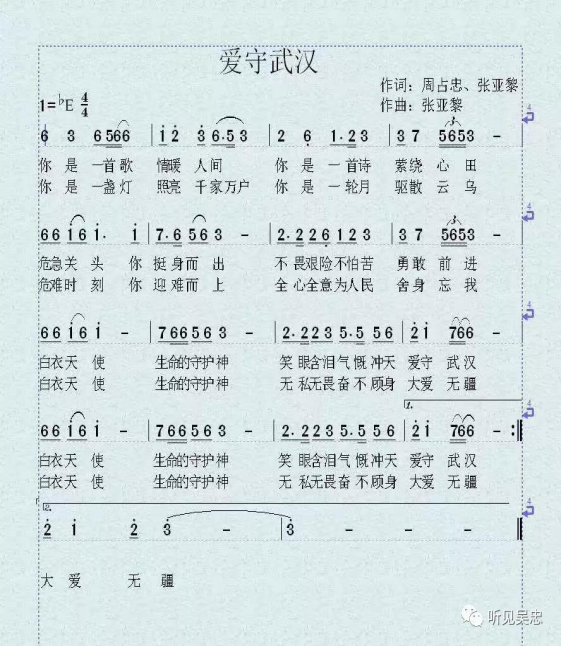 爱守武汉
作词：周占忠、张亚黎
1=♭E 4/4 作曲：张亚黎
6 3 6566 | i2 3 6·53 | 2 6 1·23 | 37 5653 -
你 是 一首歌 情暖 人间 你 是 一首诗 萦绕 心 田
你 是 一盏灯 照亮 千家万户 你 是 一轮月 驱散 云 乌
66 i6 i· i | 7·6 563 - | 2·226 123 | 37 5653 -
危急关 头 你 挺身而出 不 畏艰险不怕苦 勇敢 前 进
危难时 刻 你 迎难而上 全 心全意为人民 舍身 忘 我
66 i6 i - | 766563 - | 2·223 5·5 56 | 2i 766 -
白衣天 使 生命的守护神 笑 眼含泪气 慨 冲天 爱守 武 汉
白衣天 使 生命的守护神 无 私无畏奋 不 顾身 大爱 无 疆
1.
66 i6 i - | 766563 - | 2·223 5·5 56 | 2i 766 - :||
白衣天 使 生命的守护神 笑 眼含泪气 慨 冲天 爱守 武 汉
白衣天 使 生命的守护神 无 私无畏奋 不 顾身 大爱 无 疆
2.
2 i 2 3 - | 3 - - - ||
大 爱 无 疆
听见吴忠